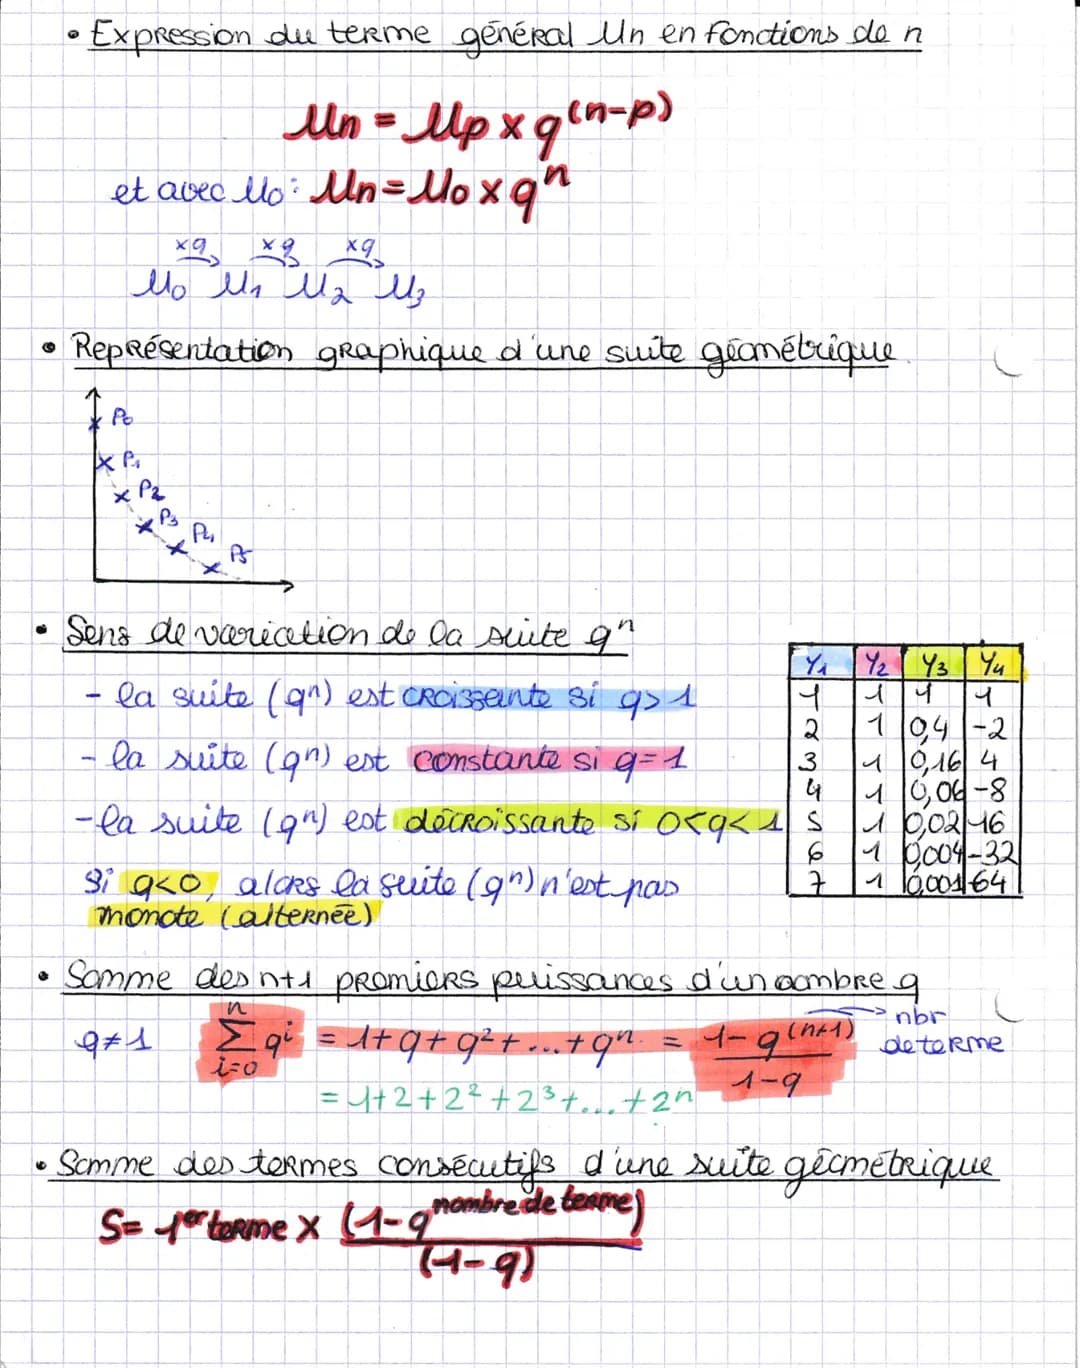 • Expression du terme général Un en fonctions de n
Un = Up x q^(n-p)
et avec U0 : Un = U0 x q^n
xq xq xq
U0 U1 U2 U3
• Représentation graphique d'une suite géométrique.
P0
P1
P2
P3
P4
P5
• Sens de variation de la suite q^n
- la suite (q^n) est croissante si q>1
- la suite (q^n) est constante si q=1
- la suite (q^n) est décroissante si 0<q<1
Si q<0, alors la suite (q^n) n'est pas
monote (alternée)
Y1 Y2 Y3 Y4
1 1 1 1
2 1 0,4 -2
3 1 0,16 4
4 1 0,06 -8
5 1 0,02 16
6 1 0,004 -32
7 1 0,001 64
• Somme des n+1 premiers puissances d'un nombre q
q≠1 n ∑ i=0 q^i = 1+q+q²+...+q^n = 1-q^(n+1) / 1-q → nbr de terme
= 1+2+2²+2³+...+2^n
• Somme des termes consécutifs d'une suite géométrique
S= 1er terme x (1-q^nombre de terme) / (1-q)